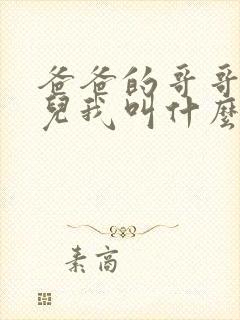 爸爸的哥哥
兒我叫什麼
素高